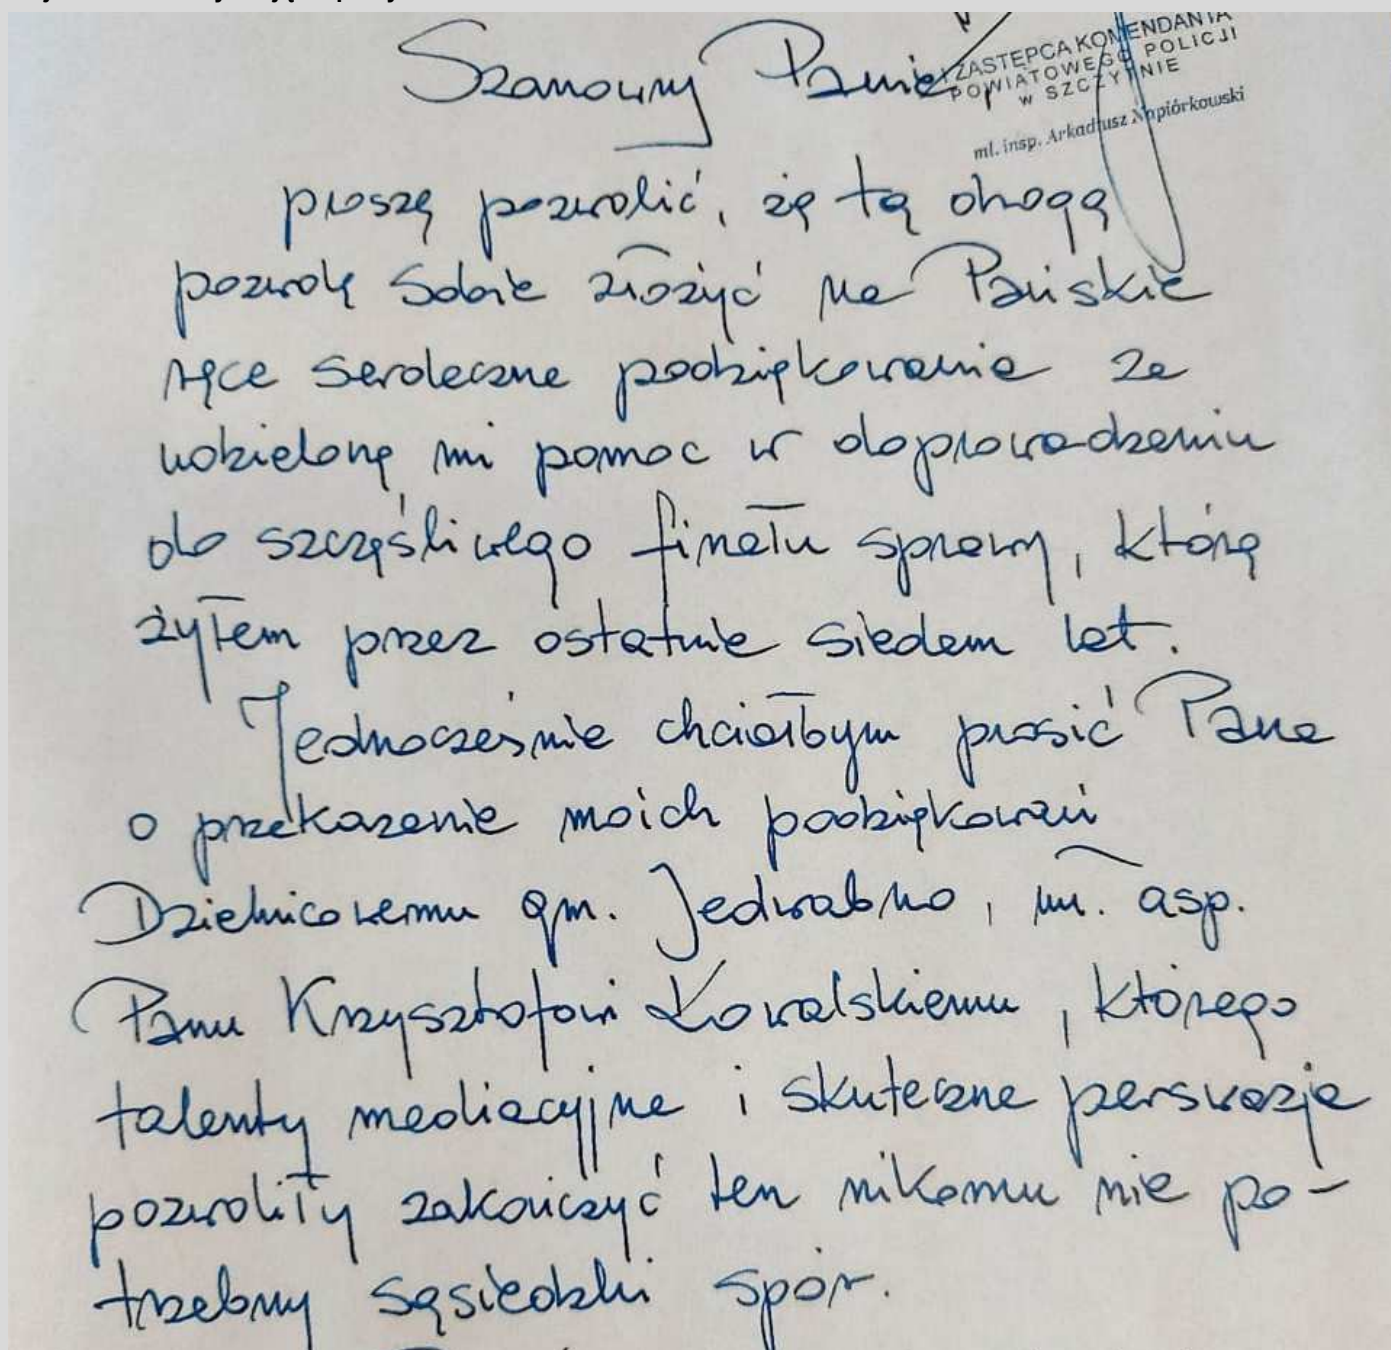 Szanowny Panie,
I ZASTĘPCA KOMENDANTA
POWIATOWEGO POLICJI
w SZCZYTNIE
mł. insp. Arkadiusz Napiórkowski
proszę pozwolić, że tą drogą
pozwolę sobie złożyć na Pańskie
ręce serdeczne podziękowania za
udzieloną mi pomoc w doprowadzeniu
do szczęśliwego finału sprawy, którą
żyłem przez ostatnie siedem lat.
Jednocześnie chciałbym prosić Pana
o przekazanie moich podziękowań
Dzielnicowemu gm. Jedwabno, mł. asp.
Panu Krzysztofowi Kowalskiemu, którego
talenty mediacyjne i skuteczna perswazja
pozwoliły zakończyć ten nikomu nie po-
trzebny sąsiedzki spór.